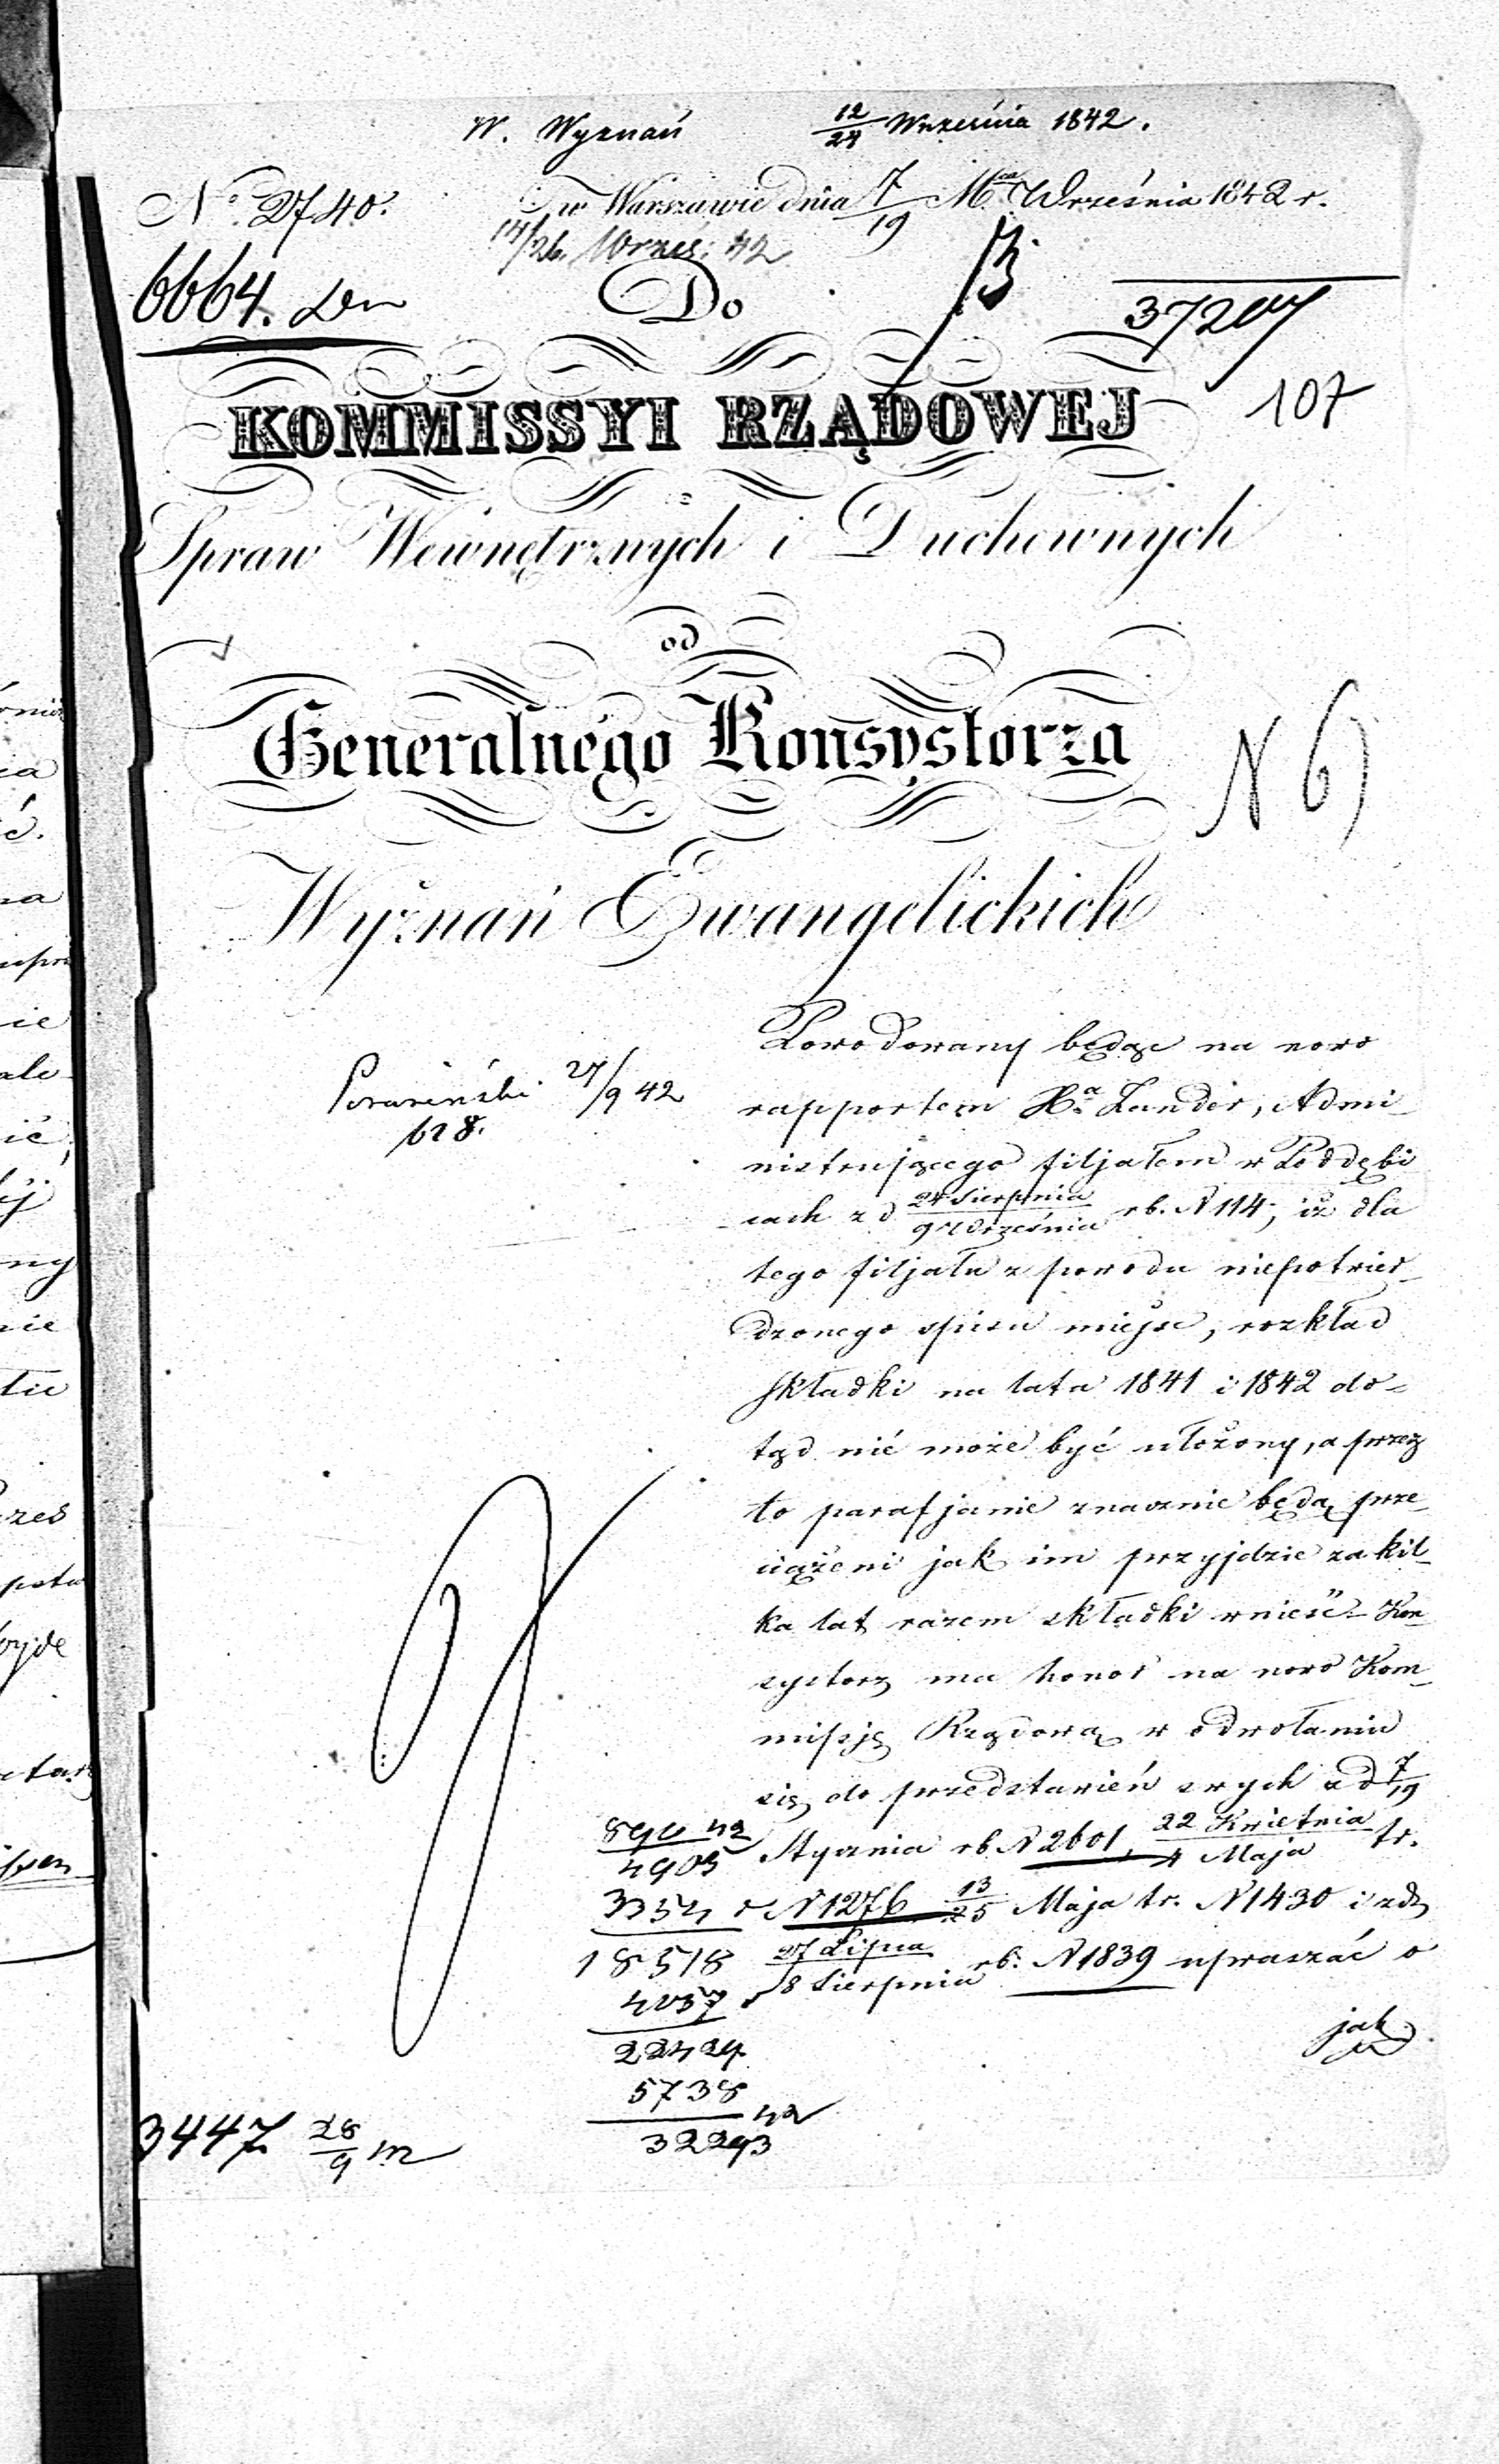 W. Wyznań 12/24 Września 1842.
No. 2740. w Warszawie dnia 7/19 Mca Września 1842 r.
14/26. Wrześ: 42
6664. Do
37207
107
KOMMISSYI RZĄDOWEJ
Spraw Wewnętrznych i Duchownych
od
Generalnego Konsystorza
N 6)
Wyznań Ewangelickich
Powodowany będąc na nowo
27/9 42
rapportem Xa Zander, Admi-
628.
nistrującego filjałem w Poddębi
cach z d 24 Sierpnia/9 Września rb. N 114, iż dla
tego filjału z powodu niepotwier-
dzonego spisu miejsc, rozkład
składki na lata 1841 i 1842 do-
tąd nié może być ułożony, a przez
to parafjanie znacznie będą prze-
ciążeni jak im przyjdzie za kil-
ka lat razem składki wnieść - Kon-
systorz ma honor na nowo Kom-
missję Rządową w odwołaniu
się do przedstawień swych z d 7/19
Stycznia rb. N 2601, 22 Kwietnia/4 Maja tr.
4905
N 1276 13/25 Maja tr. N 1430 i z d
18518 27 Lipca/8 Sierpnia rb: N 1839 upraszać o
4057
jak
22429
5738
32293
3447 28/9